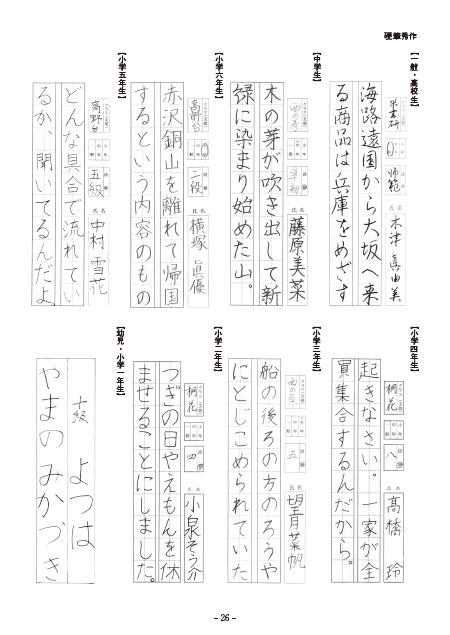 硬筆秀作
【一般・高校生】
師範
氏名
木津 眞由美
海路遠国から大坂へ来
る商品は兵庫をめざす
【中学生】
西の寿
準初
氏名
藤原美菜
木の芽が吹き出して新
緑に染まり始めた山。
【小学六年生】
高野台
二級
氏名
横塚眞優
赤沢銅山を離れて帰国
するという内容のもの
【小学五年生】
高野台
五級
氏名
中村雪花
どんな具合で流れてい
るか、聞いてるんだよ。
【小学四年生】
桐花
八
氏名
髙橋 玲
起きなさい。一家が全
員集合するんだから。
【小学三年生】
西の寿
五
氏名
望月菜帆
船の後ろの方のろうや
にとじこめられていた
【小学二年生】
桐花
四
氏名
小泉そう介
つぎの日やえもんを休
ませることにしました。
【幼児・小学一年生】
十級 よつは
やまのみかづき
- 26 -